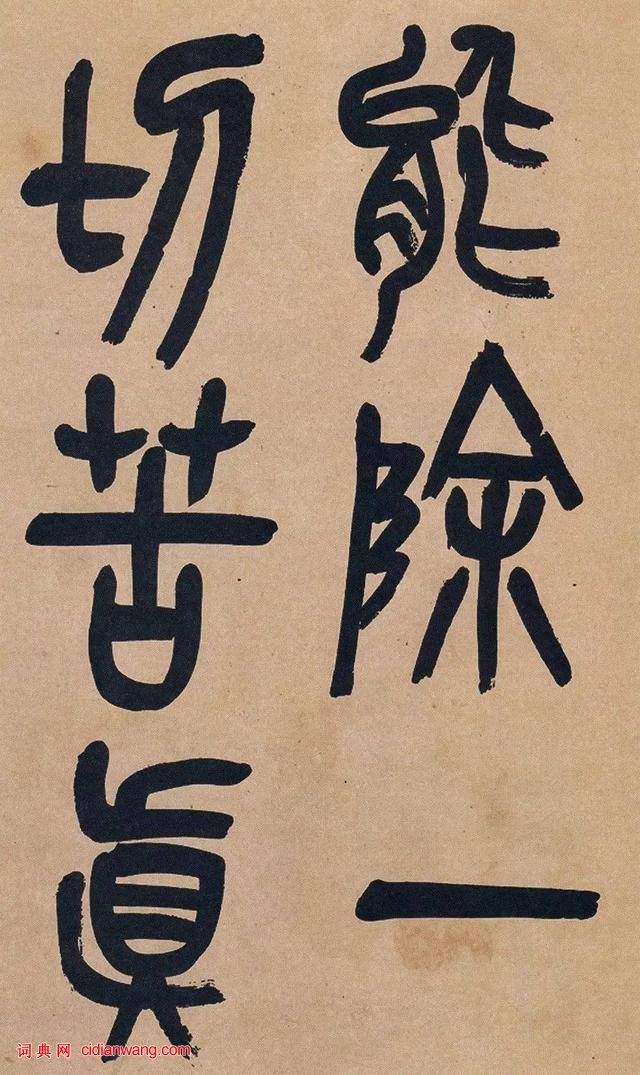 能除一
切苦眞
词典网 cidianwang.com